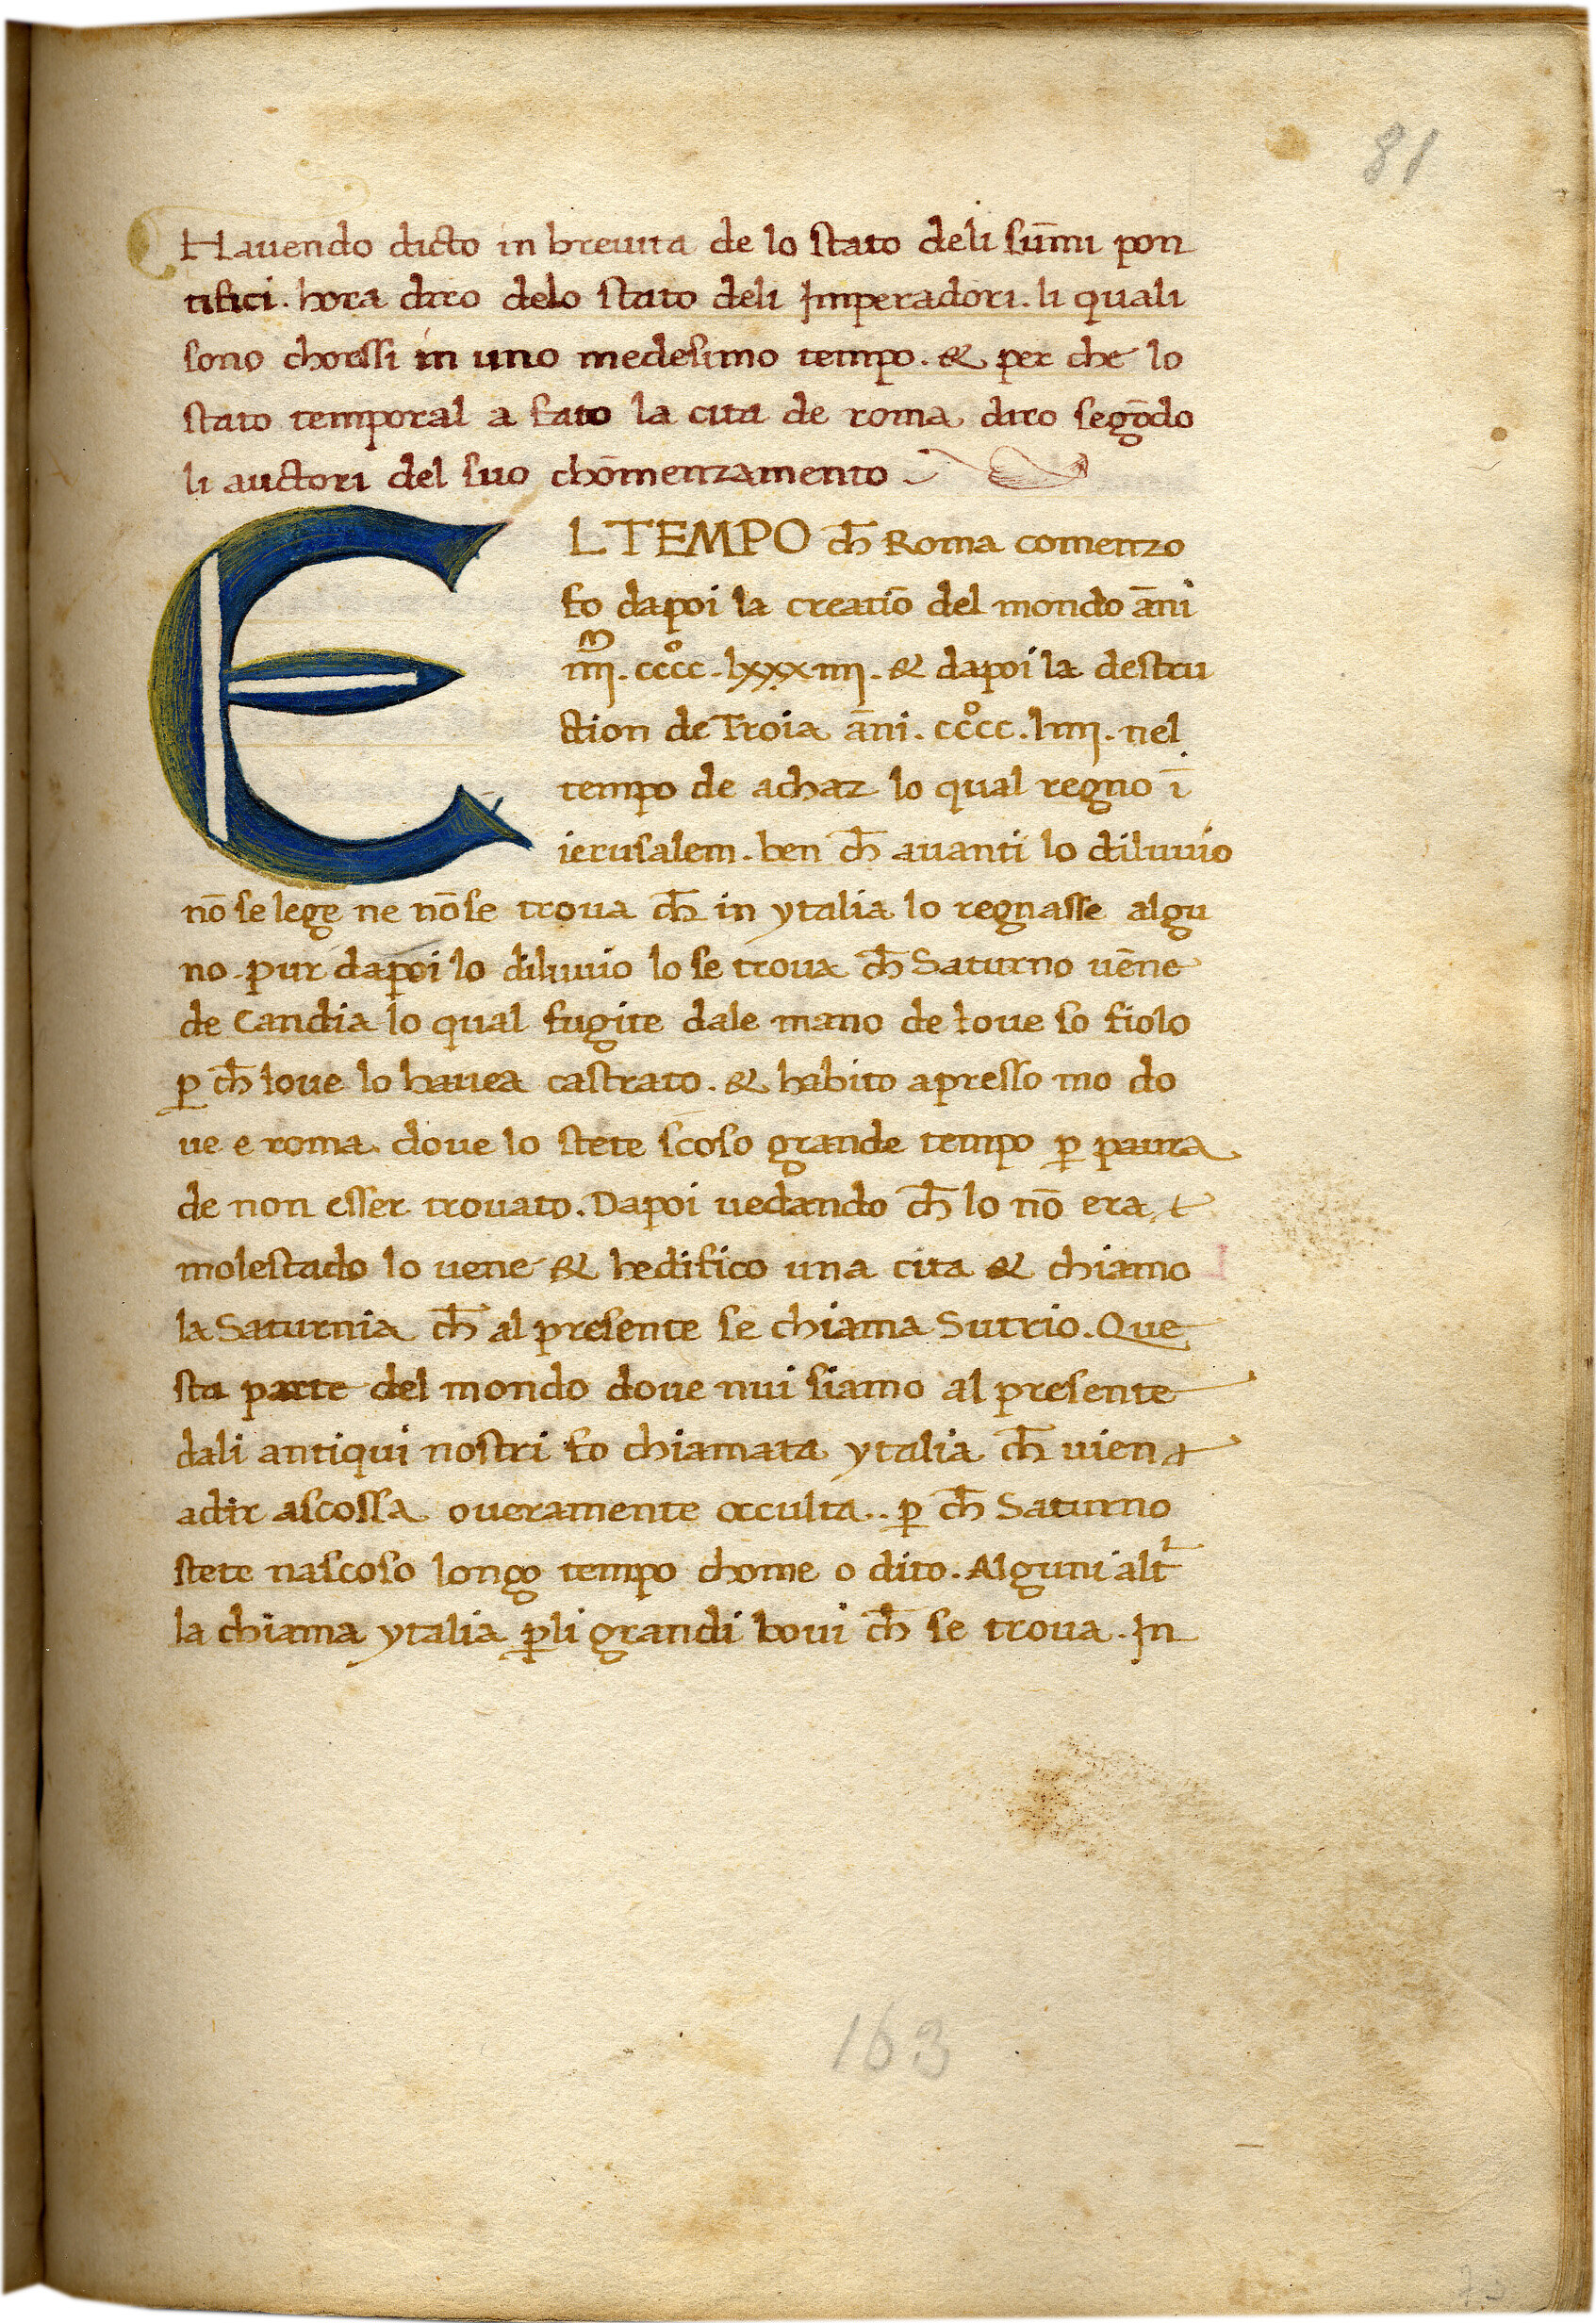 81
Hauendo dicto in breuita de lo stato deli sūmi pon
tifici. hora diro delo stato deli Imperadori. li quali
sono chorssi in uno medesimo tempo. & per che lo
stato temporal a fato la cita de roma diro segōdo
li auctori del suo chōmenzamento.
EL TEMPO ch̄ Roma comenzo
fo dapoi la creatiō del mondo āni
iiij.ᵐ ccccº. lxxxiiij. & dapoi la destru
ction de Troia āni. ccccº. liiij. nel
tempo de achaz lo qual regno ī
ierusalem. ben ch̄ auanti lo diluuio
nō se lege ne nō se troua ch̄ in ytalia lo regnasse algu
no. pur dapoi lo diluuio lo se troua ch̄ Saturno uēne
de Candia lo qual fugite dale mano de Ioue so fiolo
ꝑ ch̄ Ioue lo hauea castrato. & habito apresso mo do
ue e roma. doue lo stete scoso grande tempo ꝑ paura
de non esser trouato. Dapoi uedando ch̄ lo nō era
molestado lo uene & hedifico una cita & chiamo
la Saturnia ch̄ al presente se chiama Sutrio. Que
sta parte del mondo doue nui siamo al presente
dali antiqui nostri fo chiamata ytalia ch̄ uien
adir ascossa oueramente occulta.. ꝑ ch̄ Saturno
stete nascoso longo tempo chome o dito. Alguni alt̄
la chiama ytalia ꝑli grandi boui ch̄ se troua. In
163